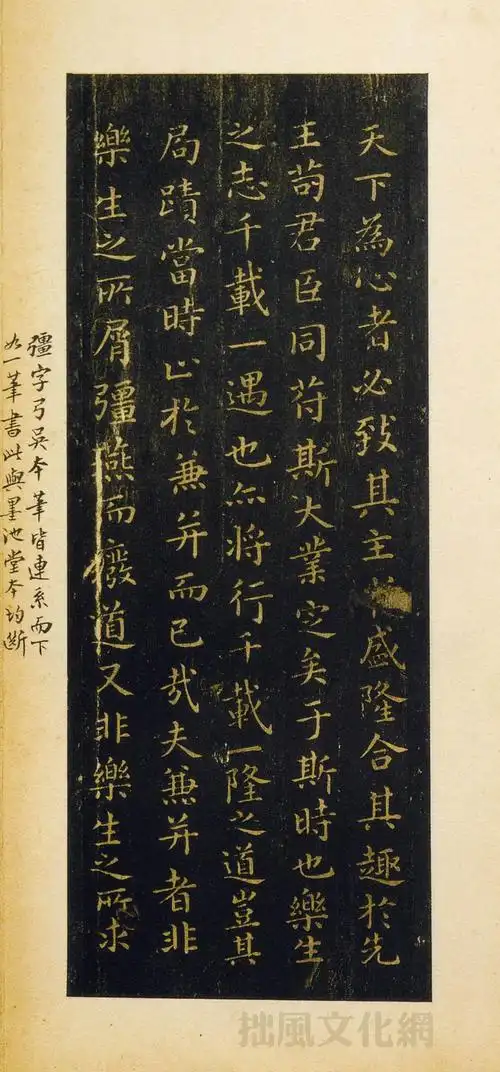 天下為心者必致其主於盛隆合其趣於先
王苟君臣同苻斯大業定矣于斯時也樂生
之志千載一遇也亦將行千載一隆之道豈其
局蹟當時止於兼并而已哉夫兼并者非
樂生之所屑彊燕而廢道又非樂生之所求
彊字弓吳本筆皆連系而下
如一筆書此與墨池堂本均斷
拙風文化網